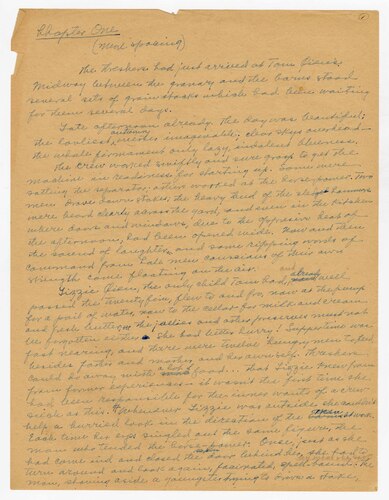 Chapter One
(More spacing)
The threshers had just arrived at Tom Bien's.
Midway between the granary and the barns stood
several sets of grain stacks which had been waiting
for them several days.
Late afternoon already. The day was beautiful;
the loveliest autumn imaginable; clear skys overhead
the whole firmament only lazy, indolent blueness.
The crew moved swiftly and sure to get the
machine in readiness for starting up. Some were
setting the separator; others worked at the horse power. Two
men drove down stakes; the heavy thud of the sledge hammers
were heard clearly across the yard, and even in the kitchen
where doors and windows, due to the oppressive heat of
the afternoon, had been opened wide. Now and then
the sound of laughter, and some ripping words of
command from hale men conscious of their own
strength came floating on the air.
Lizzie Bien, the only child Tom had, and already well
past the twenty-five, flew to and fro, now to the pump
for a pail of water, now to the cellar for milk and cream
and fresh butter; the jellies and other preserves must not
be forgotten either. She had better hurry! Suppertime was
fast nearing, and there were twelve hungry men to feed,
besides father and mother, and her own self. Threshers
could do away with a lot of food... that Lizzie knew from
from former experiences it wasn't the first time she
had been responsible for the inner wants of a crew
such as this. Whenever Lizzie was outside she couldn't
help a hurried look in the direction of the men at work.
Each time her eyes singled out the same figure, the
man who tended the horse power. Once, just as she
had come in and closed the door behind her, she had to
turn around and look again, fascinated, spell-bound: the
man, shoving aside a youngster trying to drive a stake,